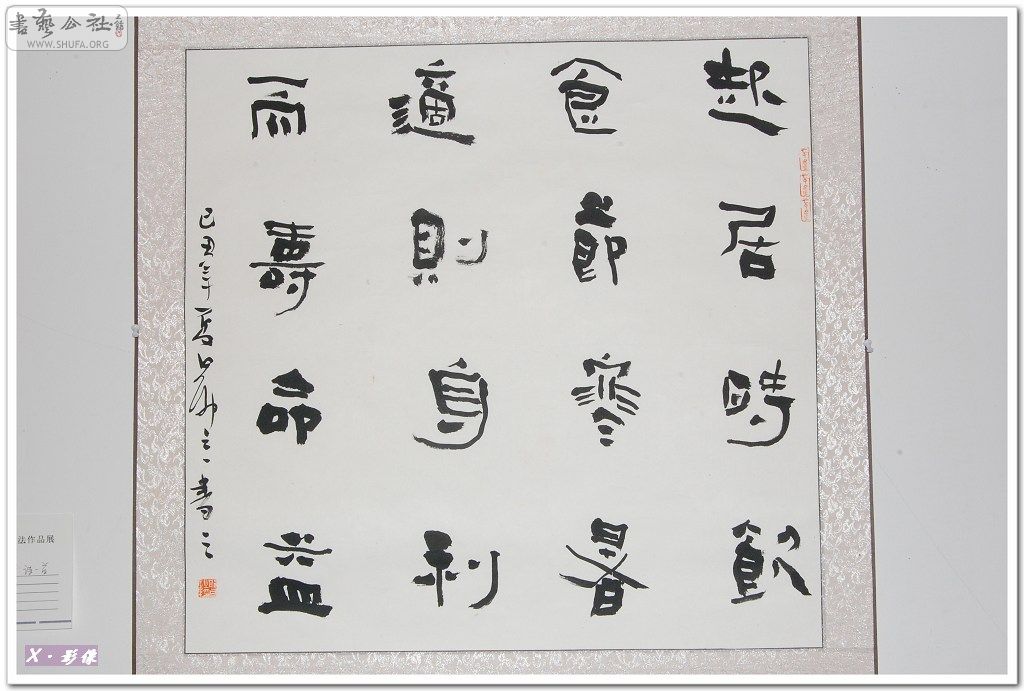 起居時飲
食節寒暑
適則身利
而壽命益
己丑年
書之
書藝公社
WWW.SHUFA.ORG
法作品展
X·影像